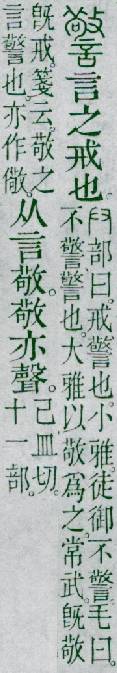 警言之戒也。
𠬞部曰。戒、警也。小雅。徒御不警。毛曰。
不警、警也。大雅以敬爲之。常武。旣敬
旣戒。箋云。敬之
言警也。亦作儆。
从言敬。敬亦聲。
己皿切。
十一部。